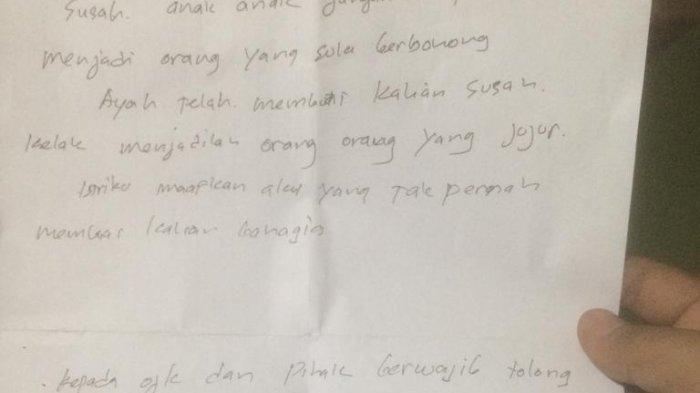 Susah. anak anak jangan
menjadi orang yang suka berbohong
Ayah telah membuat kalian susah.
kelak menjadilah orang orang yang jujur.
Istriku maapkan aku yang tak pernah
membuat kalian bahagia
. kepada ojk dan Pihak berwajib tolong